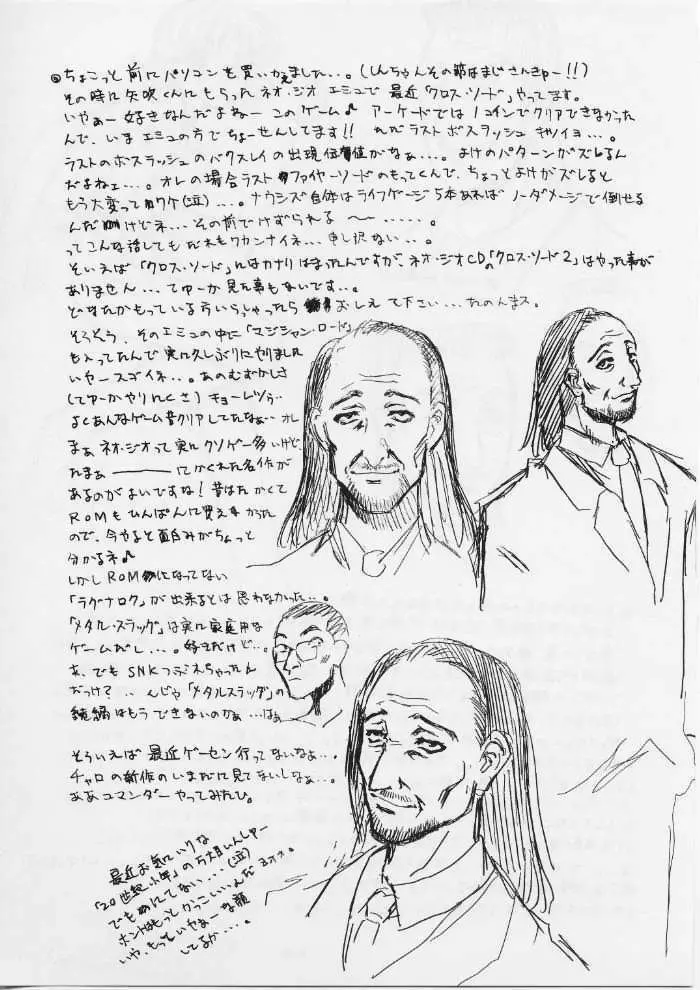 ◎ちょこっと前にパソコンを買いかえました…。(しんちゃんその節はまじさんきゅー!!)
その時に矢吹くんにもらったネオ・ジオエミュで最近「クロス・ソード」やってます。
いやぁー好きなんだよねーこのゲーム♪ アーケードでは1コインでクリアできなかった
んで、いまエミュの方でちょーせんしてます!! ただラストボスラッシュキツイヨ…。
ラストのボスラッシュのバクスレイの出現位置がなぁ…。よけのパターンがズレるん
だよねェ…。オレの場合ラストファイヤーソードのもってくんで、ちょっとよけがズレると
もう大変ってワケ(泣)…。ナウシズ自体はライフゲージ5本あればノーダメージで倒せる
んだけどネ…その前でけずられる〜……。
ってこんな話してもだれもワカンナイネ…申し訳ない…。
そいえば「クロス・ソード」にはカナリはまったんですが、ネオ・ジオCDの「クロス・ソード2」はやった事が
ありません…てゆーか見た事もないです…。
どなたかもっている方いらっしゃったらおしえて下さい…たのんまス。
そろそう、そのエミュの中に「マジシャン・ロード」
も入ってたんで実に久しぶりにやりました
いやースゴイネ…。あのむずかしさ
(てゆーかやりにくさ)キョーレツゥ…
よくあんなゲーム昔クリアしてたなぁ…オレ
まぁネオ・ジオって実にクソゲー多いけど
たまぁ―――にかくれた名作が
あるのがよいですね!昔はたかくて
ROMもひんぱんに買えなかった
ので、今やると面白みがちょっと
分かるネ♪
しかしROMになってない
「ラグナロク」が出来るとは思わなかった…。
「メタル・スラッグ」は実に家庭用な
ゲームだし…。好きだけど…。
あ、でもSNKつぶれちゃったん
だっけ?‥んじゃ「メタルスラッグ」の
続編はもうできないのかぁ…はぁ
そういえば最近ゲーセン行ってないなぁ…。
チャロの新作のいまだに見てないしなぁ…。
ああコマンダーやってみたひ。
最近お気にいりな
「20世紀少年」の万丈目いんしゅー
でもにてない…(泣)
ホントはもっとかっこいいんだョォォ。
いや、もっといやぁーな顔
してるか…。